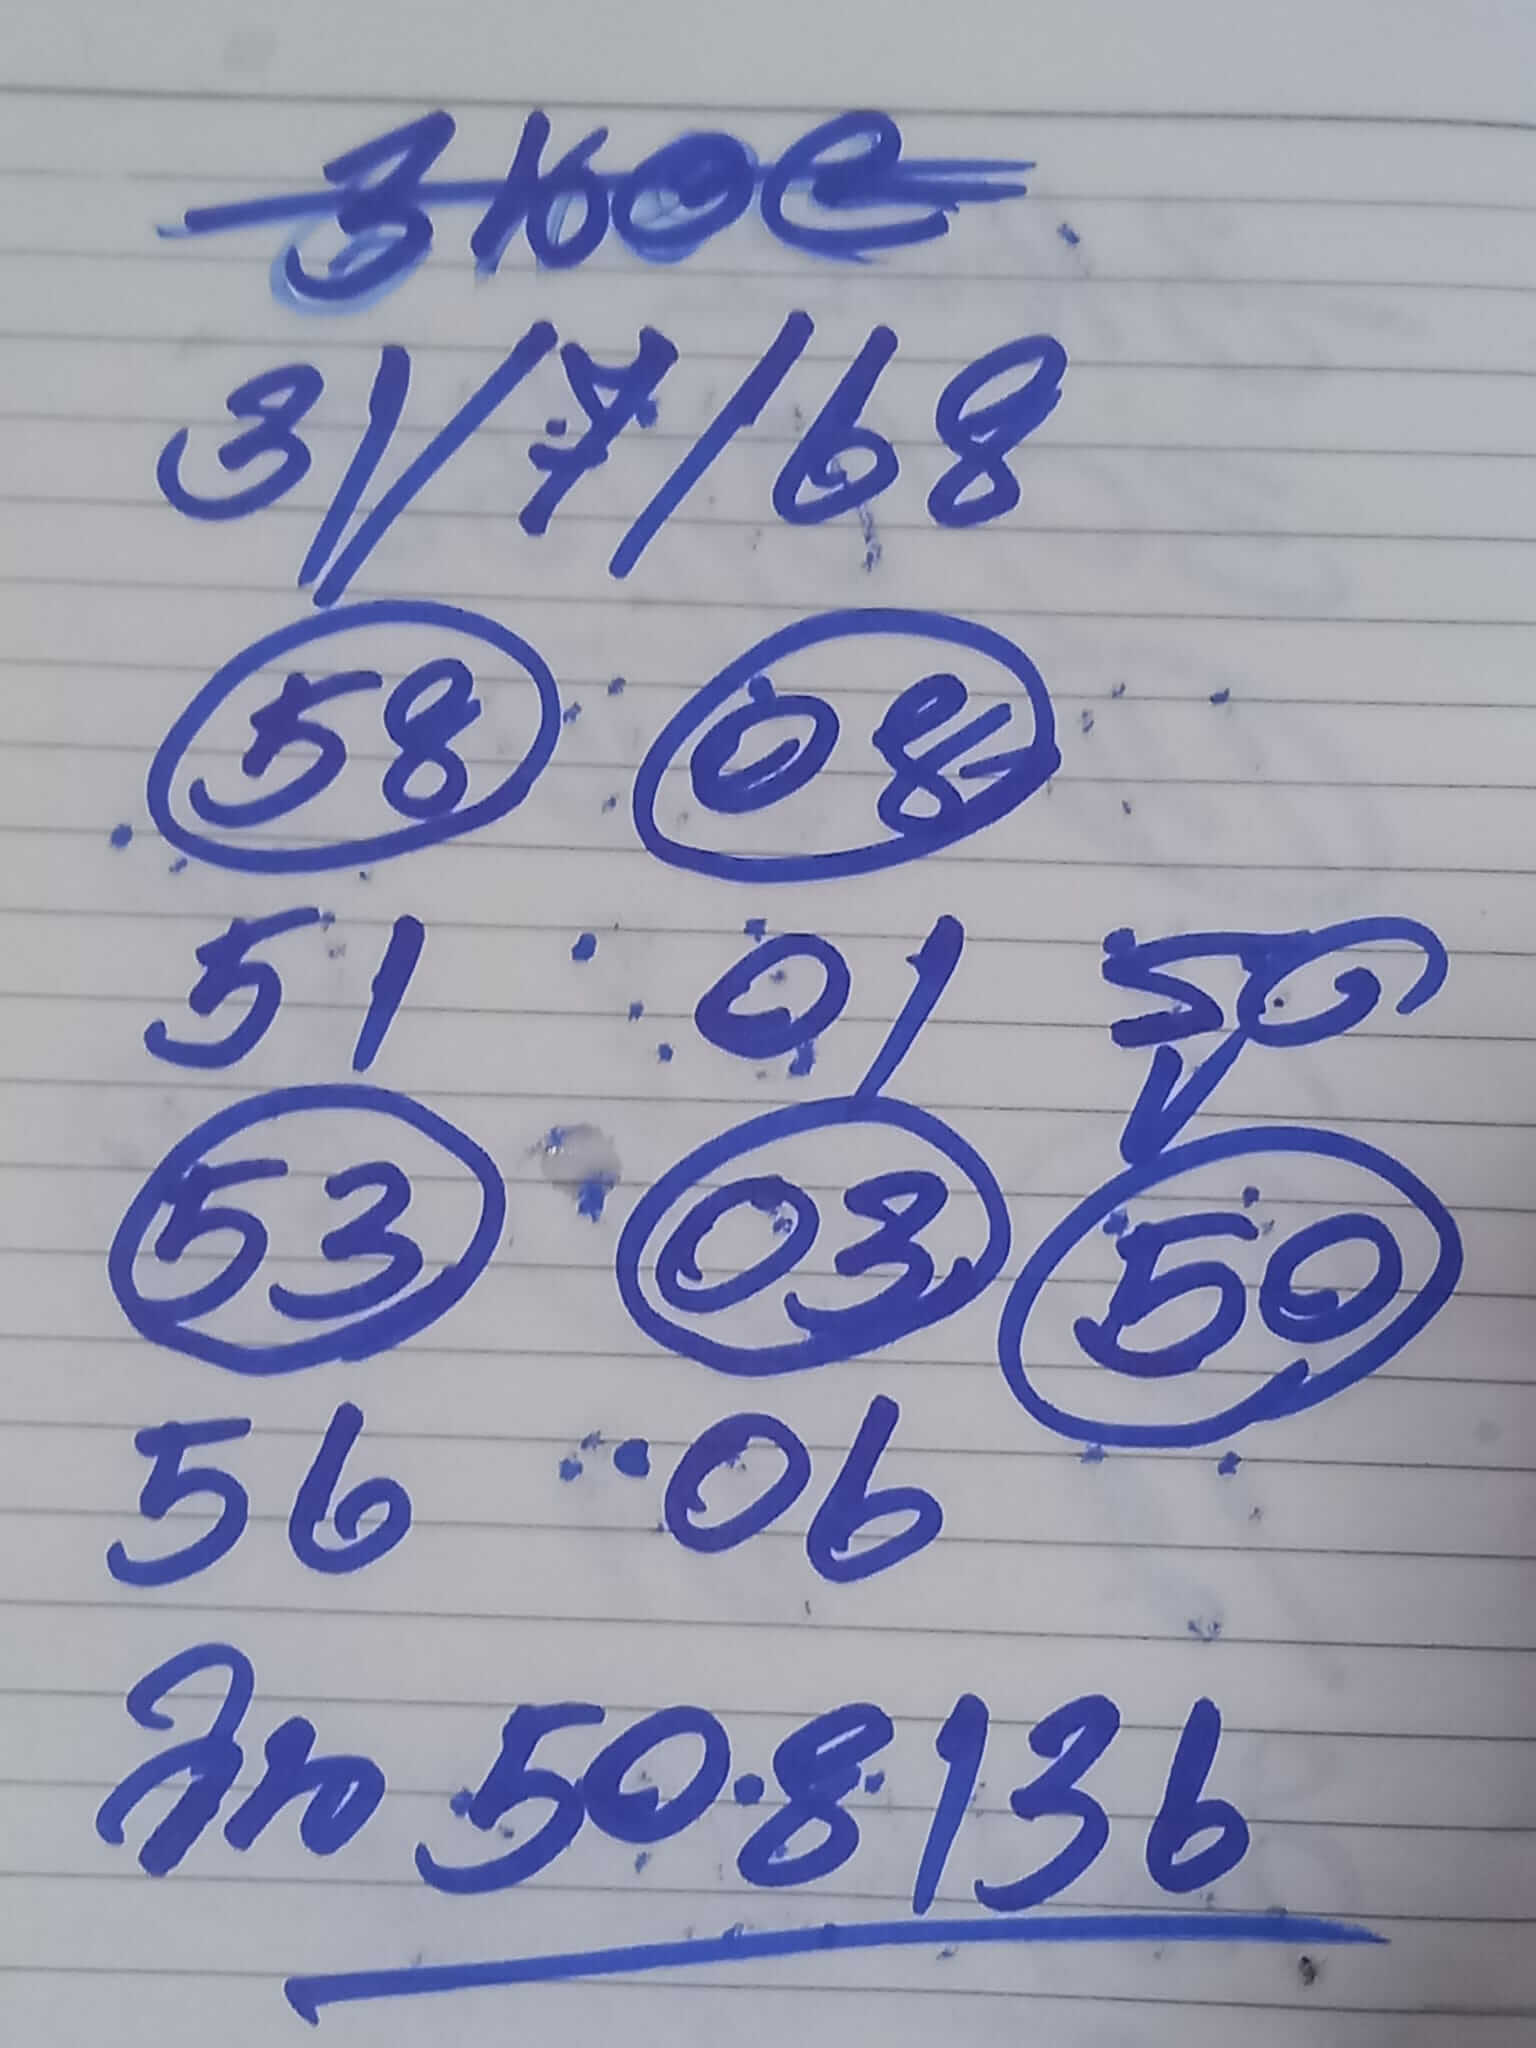 31/7/68
58 08
51 01 50
53 03 50
56 06
50.8136